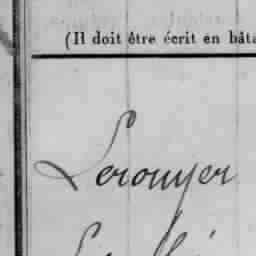 (Il doit être écrit en bâta
Lerouyer